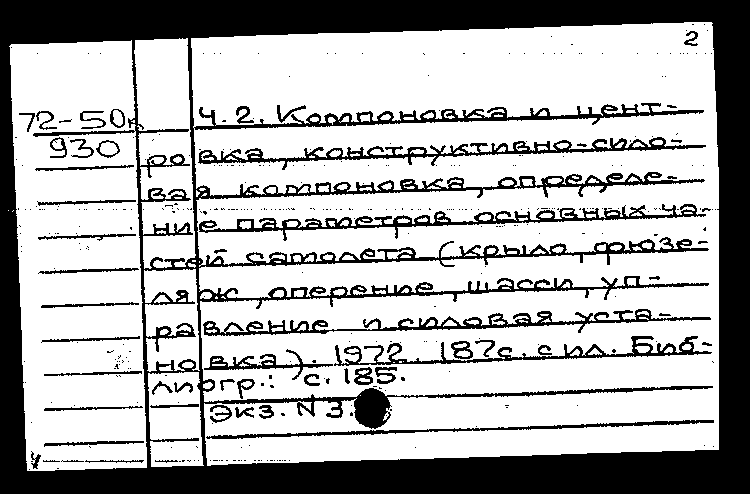 2
72-50к
930
Ч. 2. Компоновка и цент-
ровка, конструктивно-сило-
вая компоновка, определе-
ние параметров основных ча-
стей самолета (крыло, фюзе-
ляж, оперение, шасси, уп-
равление и силовая уста-
новка). 1972. 187с. с ил. Биб-
лиогр.: с. 185.
Экз. N 3.